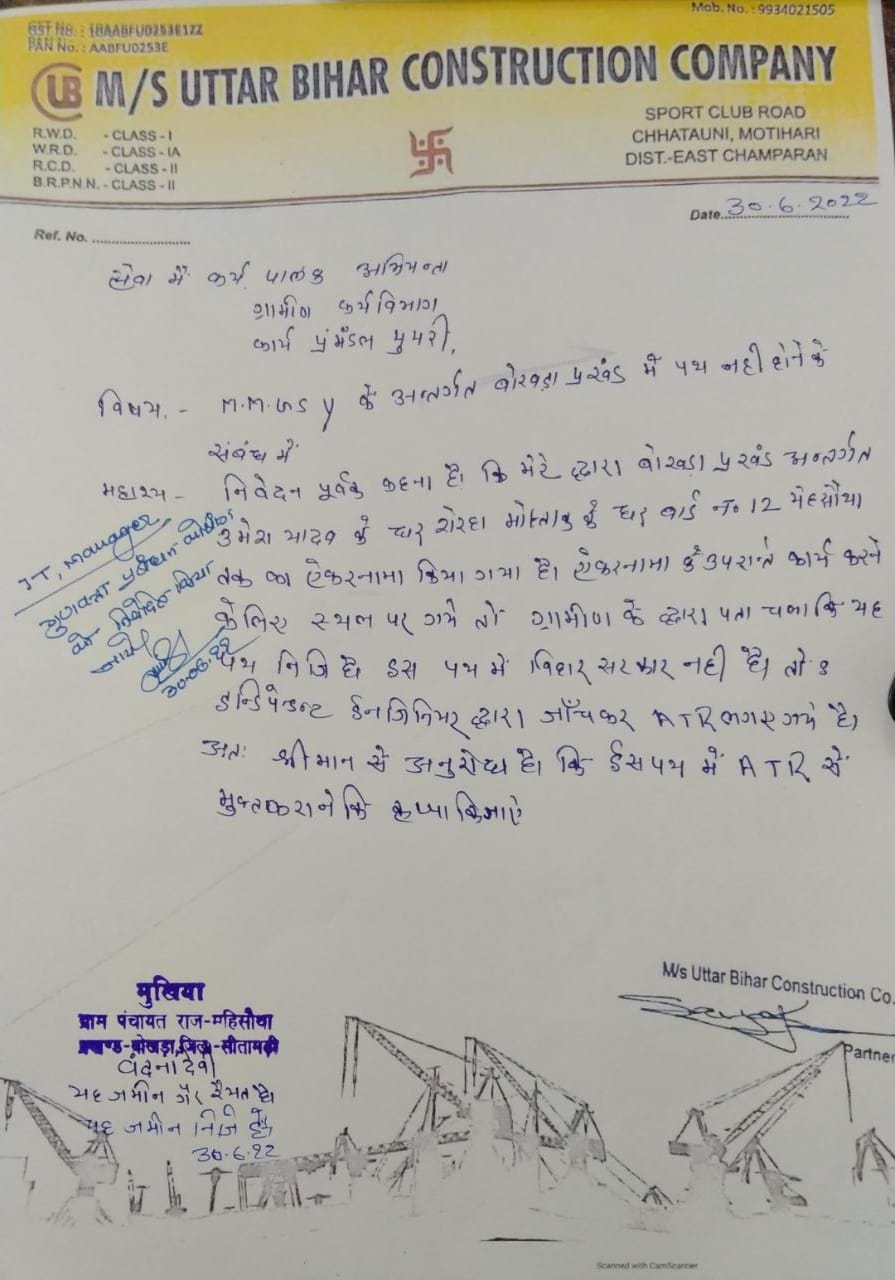 GST No. : 10AABFU0253E1ZZ
PAN No. : AABFU0253E
Mob. No. : 9934021505
UB M/S UTTAR BIHAR CONSTRUCTION COMPANY
R.W.D. - CLASS - I
W.R.D. - CLASS - IA
R.C.D. - CLASS - II
B.R.P.N.N. - CLASS - II
SPORT CLUB ROAD
CHHATAUNI, MOTIHARI
DIST.-EAST CHAMPARAN
Date 30.6.2022
Ref. No.
सेवा में कार्य पालक अभियन्ता
ग्रामीण कार्य विभाग
कार्य प्रमंडल पुपरी,
विषय - M.M.GSY के अन्तर्गत बोखड़ा प्रखंड में पथ नही होने के
संबंध में
महाश्य - निवेदन पूर्वक कहना है। कि मेरे द्वारा बोखड़ा प्रखंड अन्तर्गत
उमेश यादव के घर से मोस्ताक के घर वार्ड न० 12 मेहसौथा
तक का ऐकरनामा किया गया है। ऐकरनामा के उपरान्त कार्य करने
के लिए स्थल पर गये तो ग्रामीण के द्वारा पता चला कि यह
पथ निजि है। इस पथ में बिहार सरकार नही है। तो
इन्डिपेन्डेन्ट ईनजिनियर द्वारा जाँचकर ATR लगाए गये है।
अतः श्रीमान से अनुरोध है। कि ईस पथ में ATR से
मुक्त कराने कि कृप्पा किजाऐ
JT, Manager
गुणवत्ता
को निर्देशित किया
जाये
30.06.22
मुखिया
ग्राम पंचायत राज-महिसौथा
प्रखण्ड-बोखड़ा, जिला-सीतामढ़ी
वंदना देवी
यह जमीन गैर रैयत है।
यह जमीन निजि है
30.6.22
M/s Uttar Bihar Construction Co.
Partner
Scanned with CamScanner